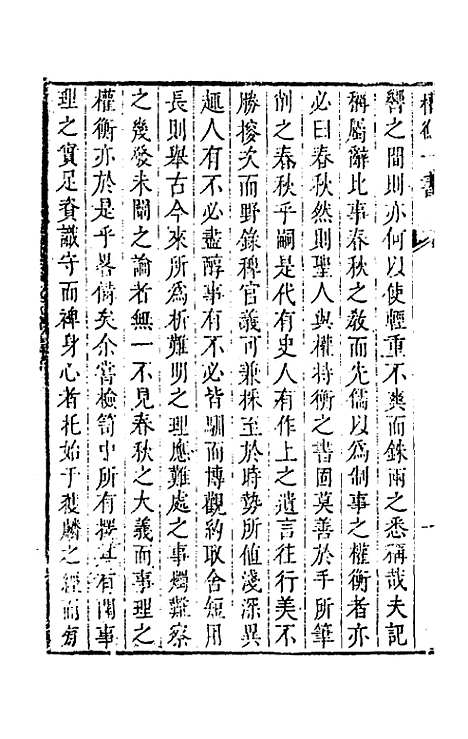 權衡一書
響之間則亦何以使輕重不爽而銖兩之悉稱哉夫記
稱屬辭比事春秋之敎而先儒以爲制事之權衡者亦
必曰春秋然則聖人與權持衡之書固莫善於手所筆
削之春秋乎嗣是代有史人有作上之遺言往行美不
勝搜次而野錄稗官義可兼採至於時勢所値淺深異
趣人有不必盡醇事有不必皆馴而博觀約取舍短用
長則舉古今來所爲析難明之理應難處之事燭難察
之幾發未聞之論者無一不見春秋之大義而事理之
權衡亦於是乎畧備矣余嘗檢笥中所有擇其有關事
理之實足資識守而裨身心者托始于獲麟之經而旁